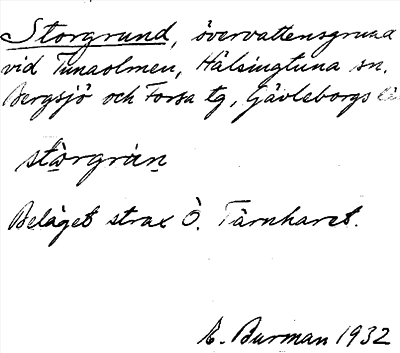 Storgrund, övervattensgrund
vid Tunaolmen, Hälsingtuna sn.
Bergsjö och Forsa tg, Gävleborgs
stòrgrùn
Beläget strax Ö. Tärnharet.
E. Burman 1932